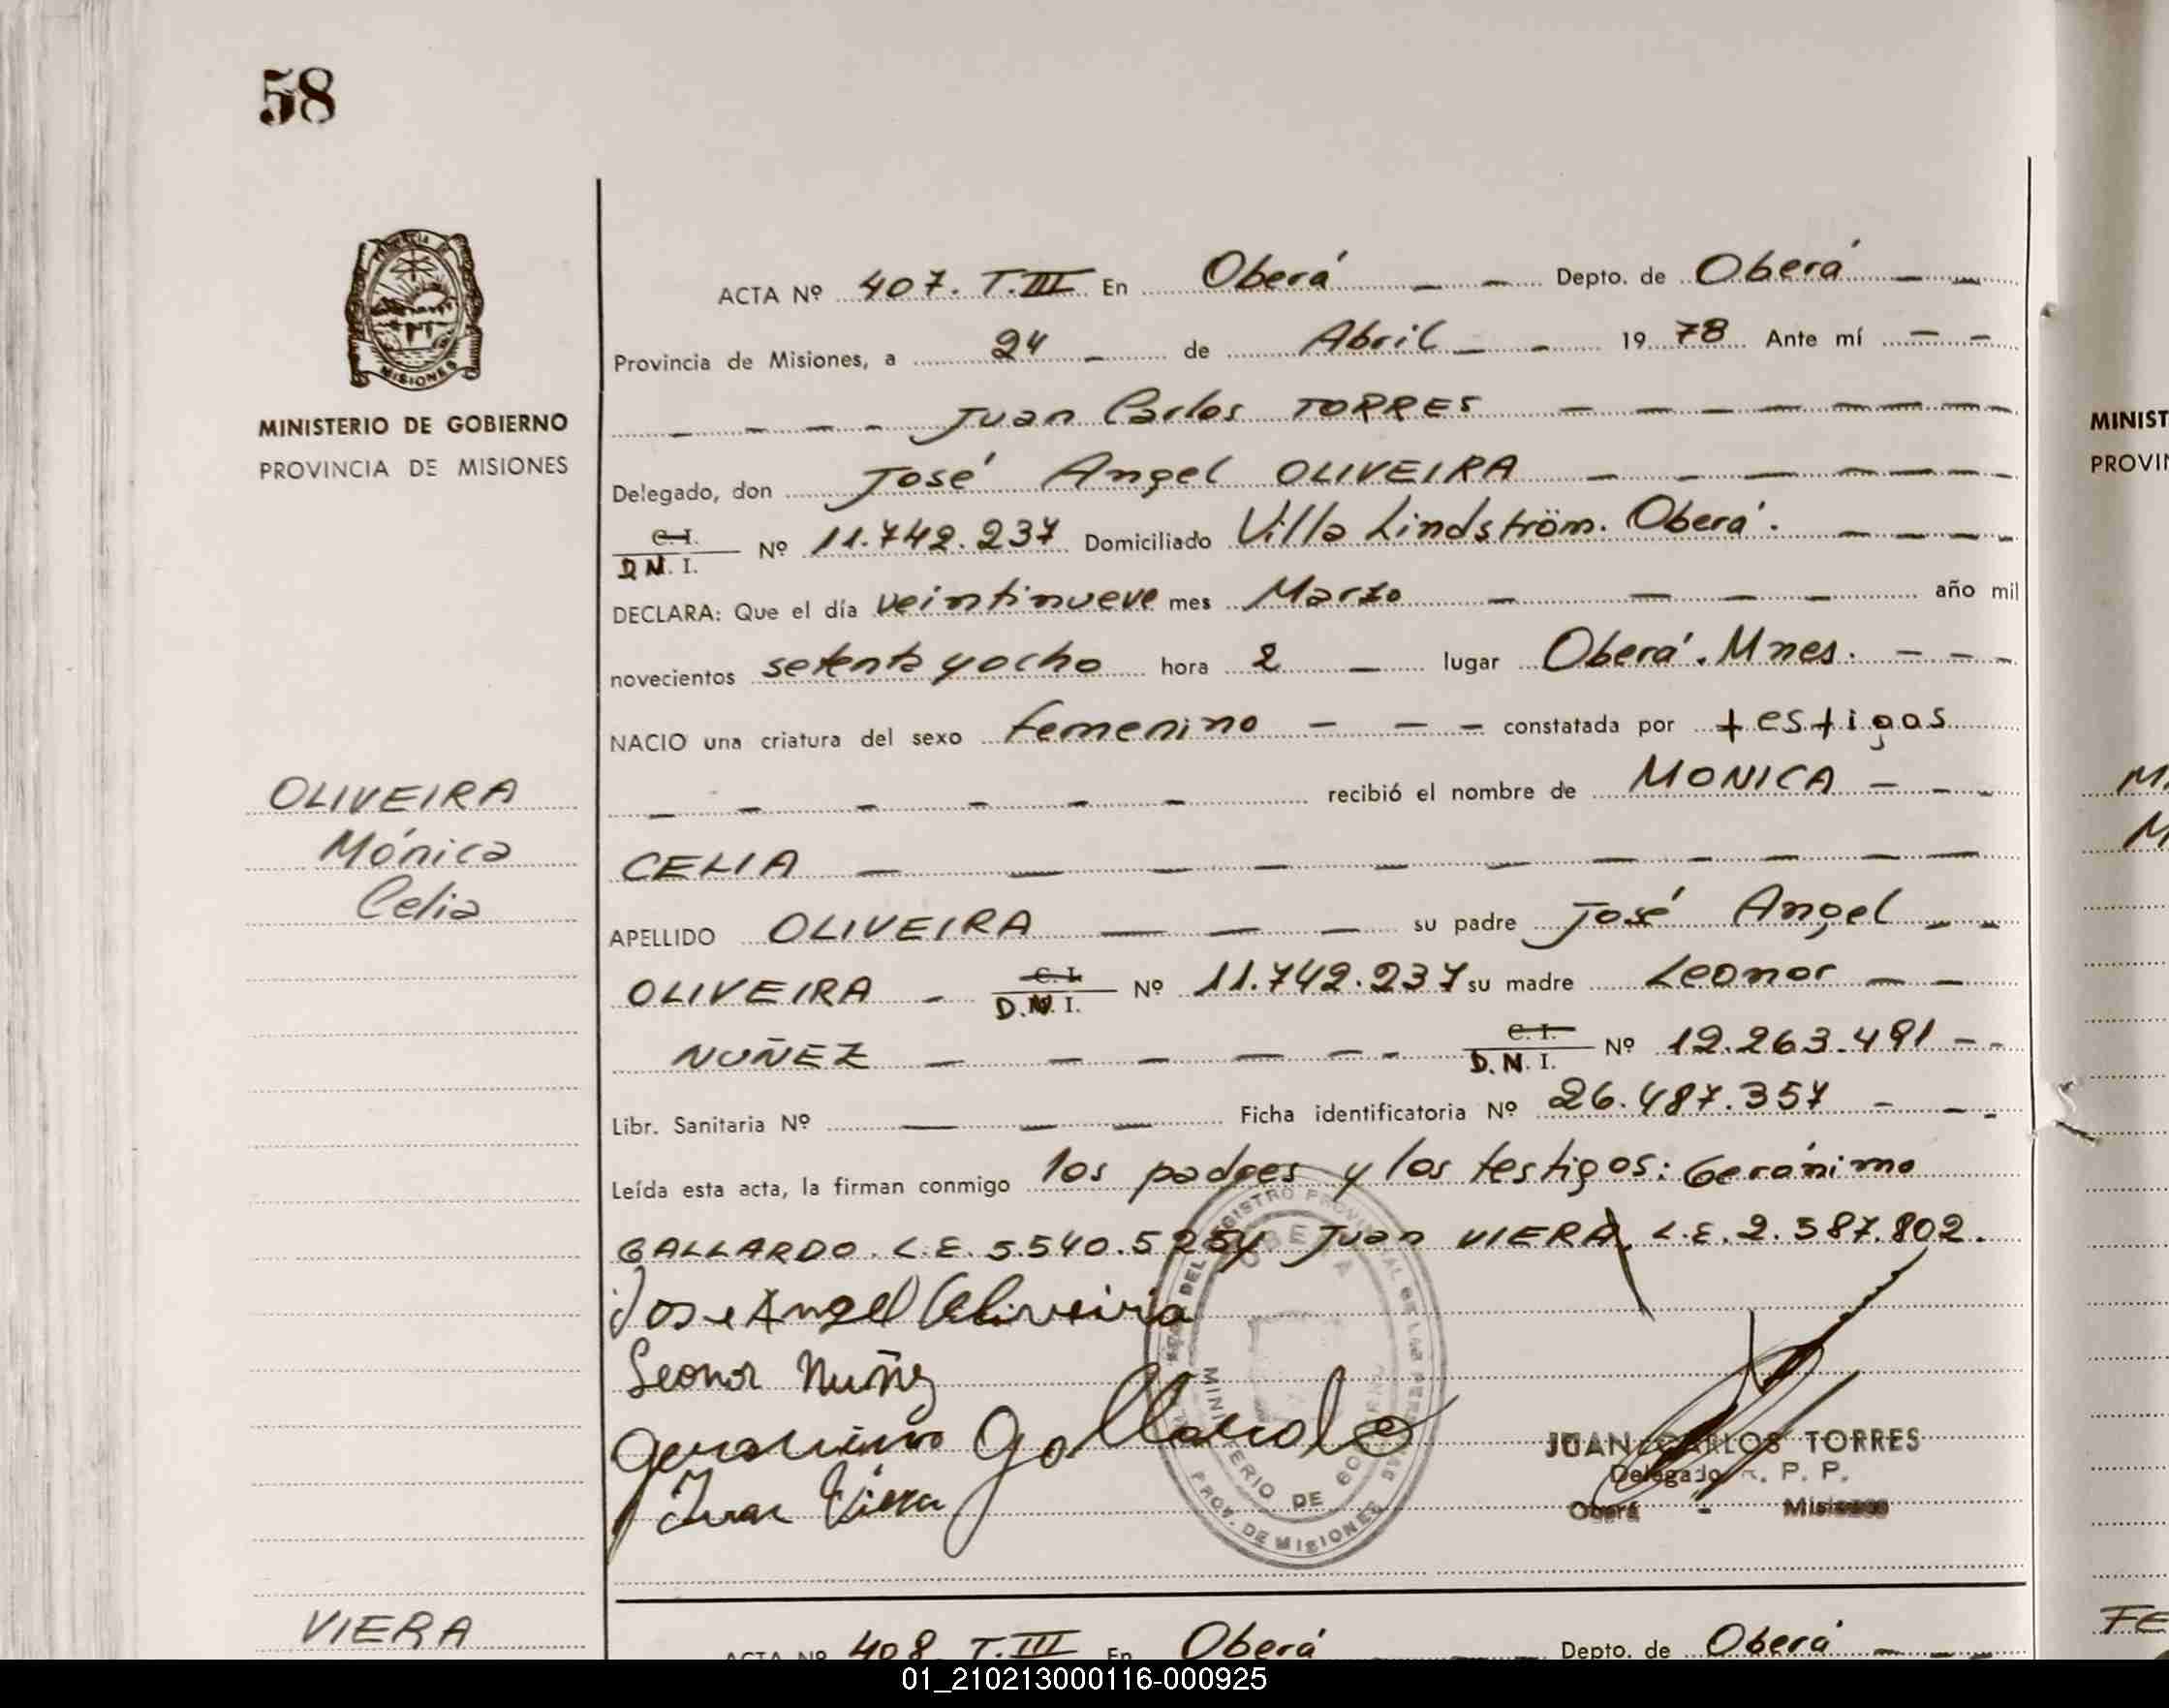 58
MINISTERIO DE GOBIERNO
PROVINCIA DE MISIONES
MISIONES
OLIVEIRA
Mónica
Celia
VIERA
ACTA Nº 407. T.III En Oberá — — Depto. de Oberá — —
Provincia de Misiones, a 24 — de Abril — — 1978 Ante mí — —
— — — — Juan Carlos TORRES — — — — — — —
Delegado, don José Angel OLIVEIRA — — — — — —
C.I.
D.N.I. Nº 11.742.237 Domiciliado Villa Lindström. Oberá. — — — —
DECLARA: Que el día veintinueve mes Marzo — — — — año mil
novecientos setenta y ocho hora 2 — lugar Oberá. Mnes. — — —
NACIO una criatura del sexo femenino — — — constatada por testigos
— — — — — — recibió el nombre de MONICA — — —
CELIA — — — — — — — — — —
APELLIDO OLIVEIRA — — — su padre José Angel — —
OLIVEIRA — C.I. D.N.I. Nº 11.742.237 su madre Leonor — —
NUÑEZ — — — — — — C.I. D.N.I. Nº 12.263.491 — —
Libr. Sanitaria Nº — — — Ficha identificatoria Nº 26.487.357 — — —
Leída esta acta, la firman conmigo los padres y los testigos: Gerónimo
GALLARDO. L.E. 5.540.525 y Juan VIERA, L.E. 2.587.802.
Jose Angel Oliveira
Leonor Nuñez
Geronimo Gallardo
Juan Viera
OBERA
MINISTERIO DE GOBIERNO
PROV. DE MISIONES
JUAN CARLOS TORRES
Delegado R. P. P.
Oberá - Misiones
ACTA Nº 408 T.III En Oberá Depto. de Oberá — —
MINIST
PROVIN
M
M
FE
01_210213000116-000925